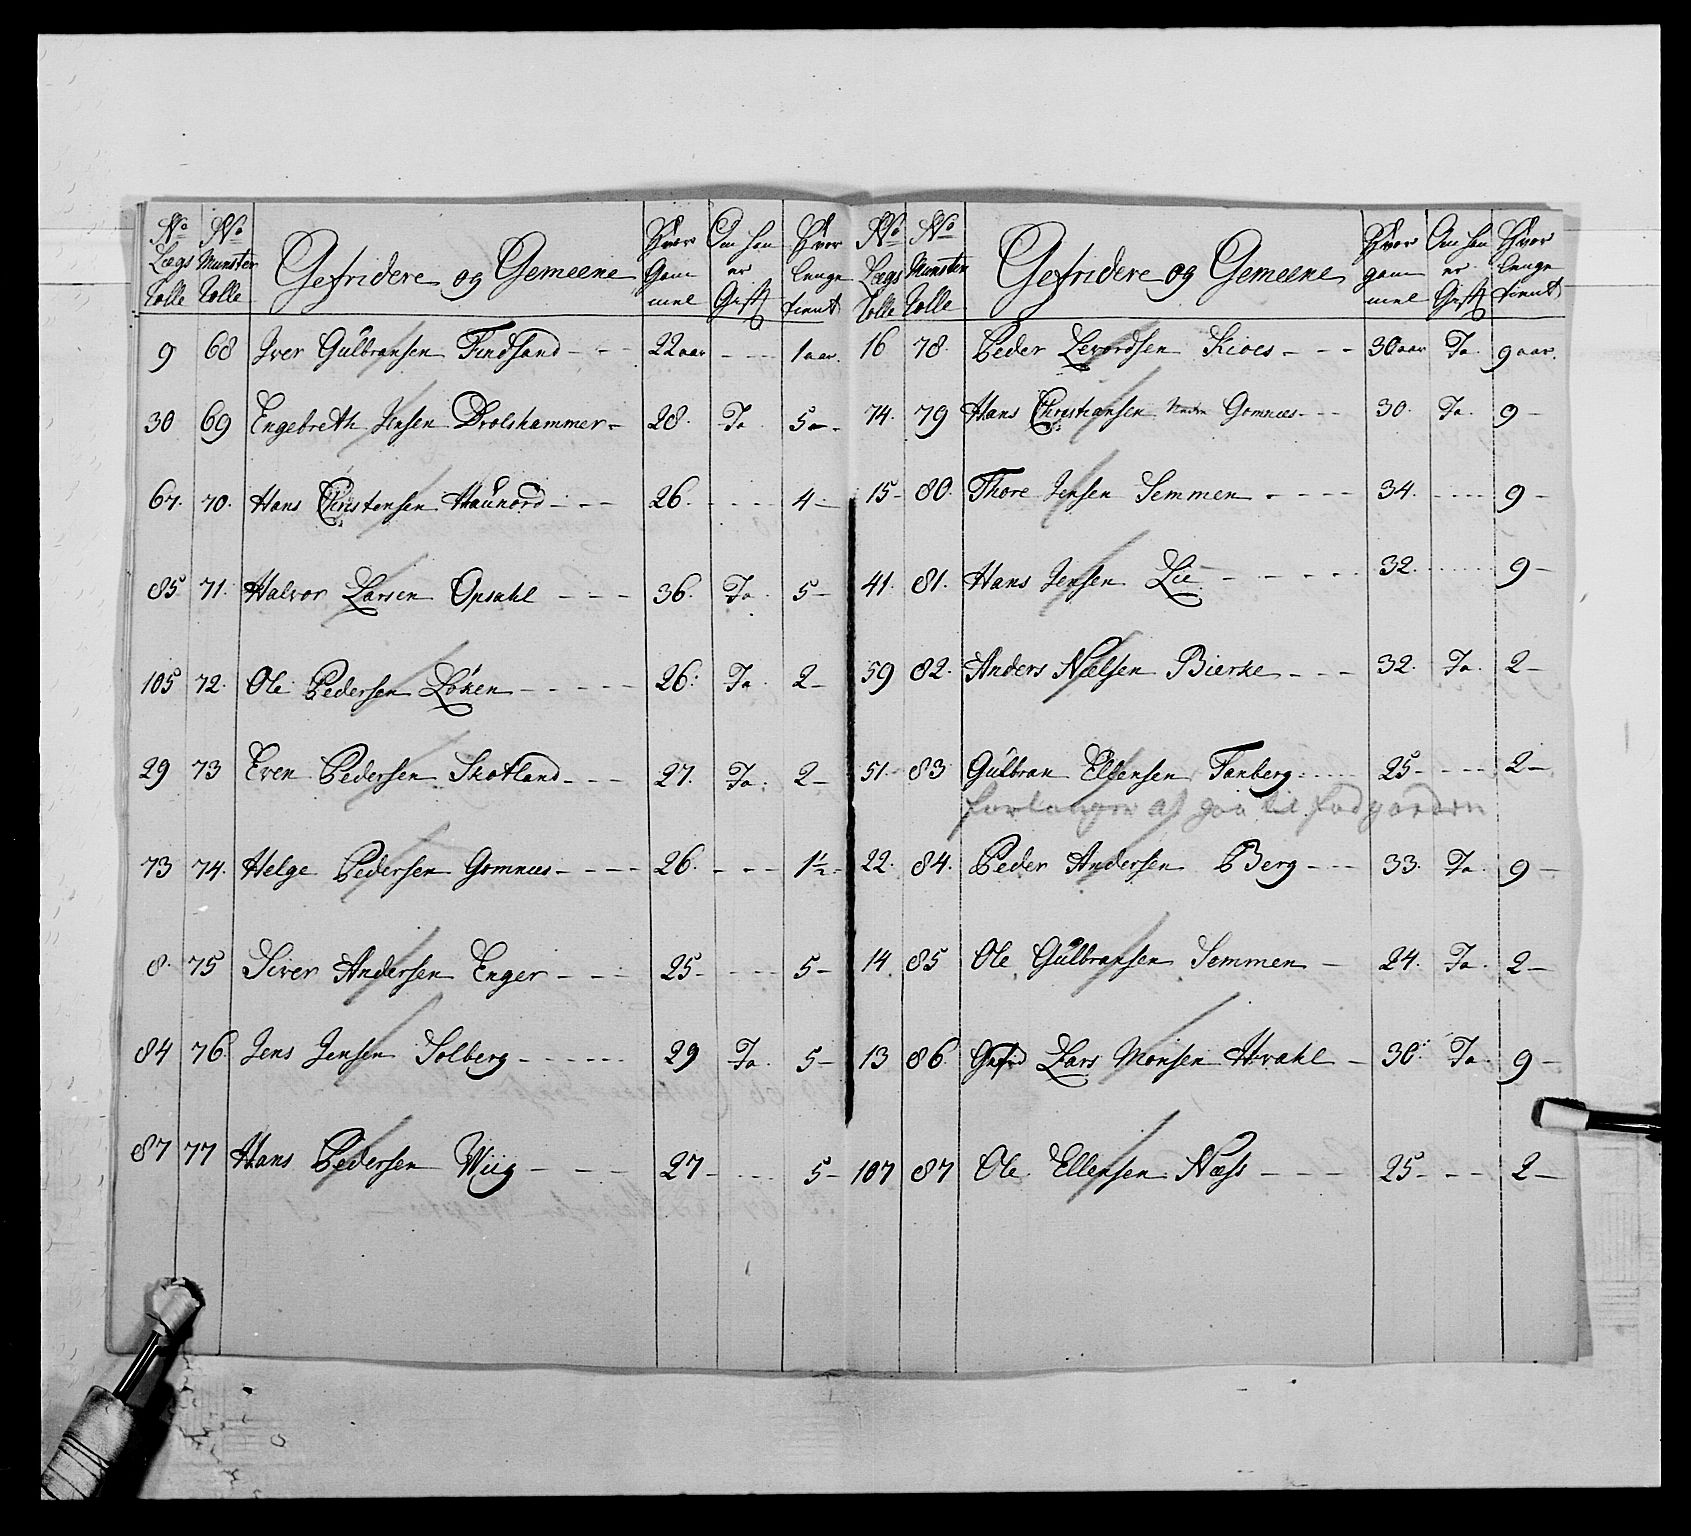 No Lægs Rolle | No Munster Rolle | Gefridere og Gemeene | Hvor Gammel | Om han er Gift | Hvor lenge tient
9 68 Iver Gulbransen Findsand - - - 22 aar - - - 1 aar.
30 69 Engebreth Jensen Drolshammer - 28. Ja 5 -
67. 70. Hans Christensen Haunord - - - 26. - - - 4 -
85 71. Halvor Larsen Opsahl - - - 36. Ja. 5 -
105 72. Ole Pedersen Løken - - - - - 26. Ja. 2 -
29 73 Even Pedersen Skotland - - - 27. Ja. 2 -
73 74. Helge Pedersen Gomnæs - - - - 26. - - - 1½ -
8. 75 Siver Andersen Enger - - - 25 - - - - 5 -
84 76. Jens Jensen Solberg - - - - - - 29 Ja. 5 -
87 77 Hans Pedersen Wiig - - - 27 - - - - 5 -
No Lægs Rolle | No Munster Rolle | Gefridere og Gemeene | Hvor gammel | Om han er Gift | Hvor lenge tient
16 78. Peder Levordsen Kioes - - - 30 aar Ja. 9 aar.
74. 79 Hans Christiansen Gomnæs - - - 30. Ja. 9 -
15 - 80. Thore Jensen Semmen - - - - 34. - - - - 9 -
41. 81. Hans Jensen Lie - - - - - 32. - - - - 9 -
59 82. Anders Nielsen Bierke - - - 32. Ja. 2 -
51. 83 Gulbran Ellensen Tanberg - - - 25 - - - - 2 -
forlanger at gaa til fodgarden
22. 84. Peder Andersen Berg - - - 33. Ja. 9 -
14. 85 Ole Gulbransen Semmen - 24. Ja. 2 -
13 86. Gefrid Lars Monsen Hvahl - 30. Ja. 9 -
107 87 Ole Ellensen Næss - - - - 25 - - - 2 -